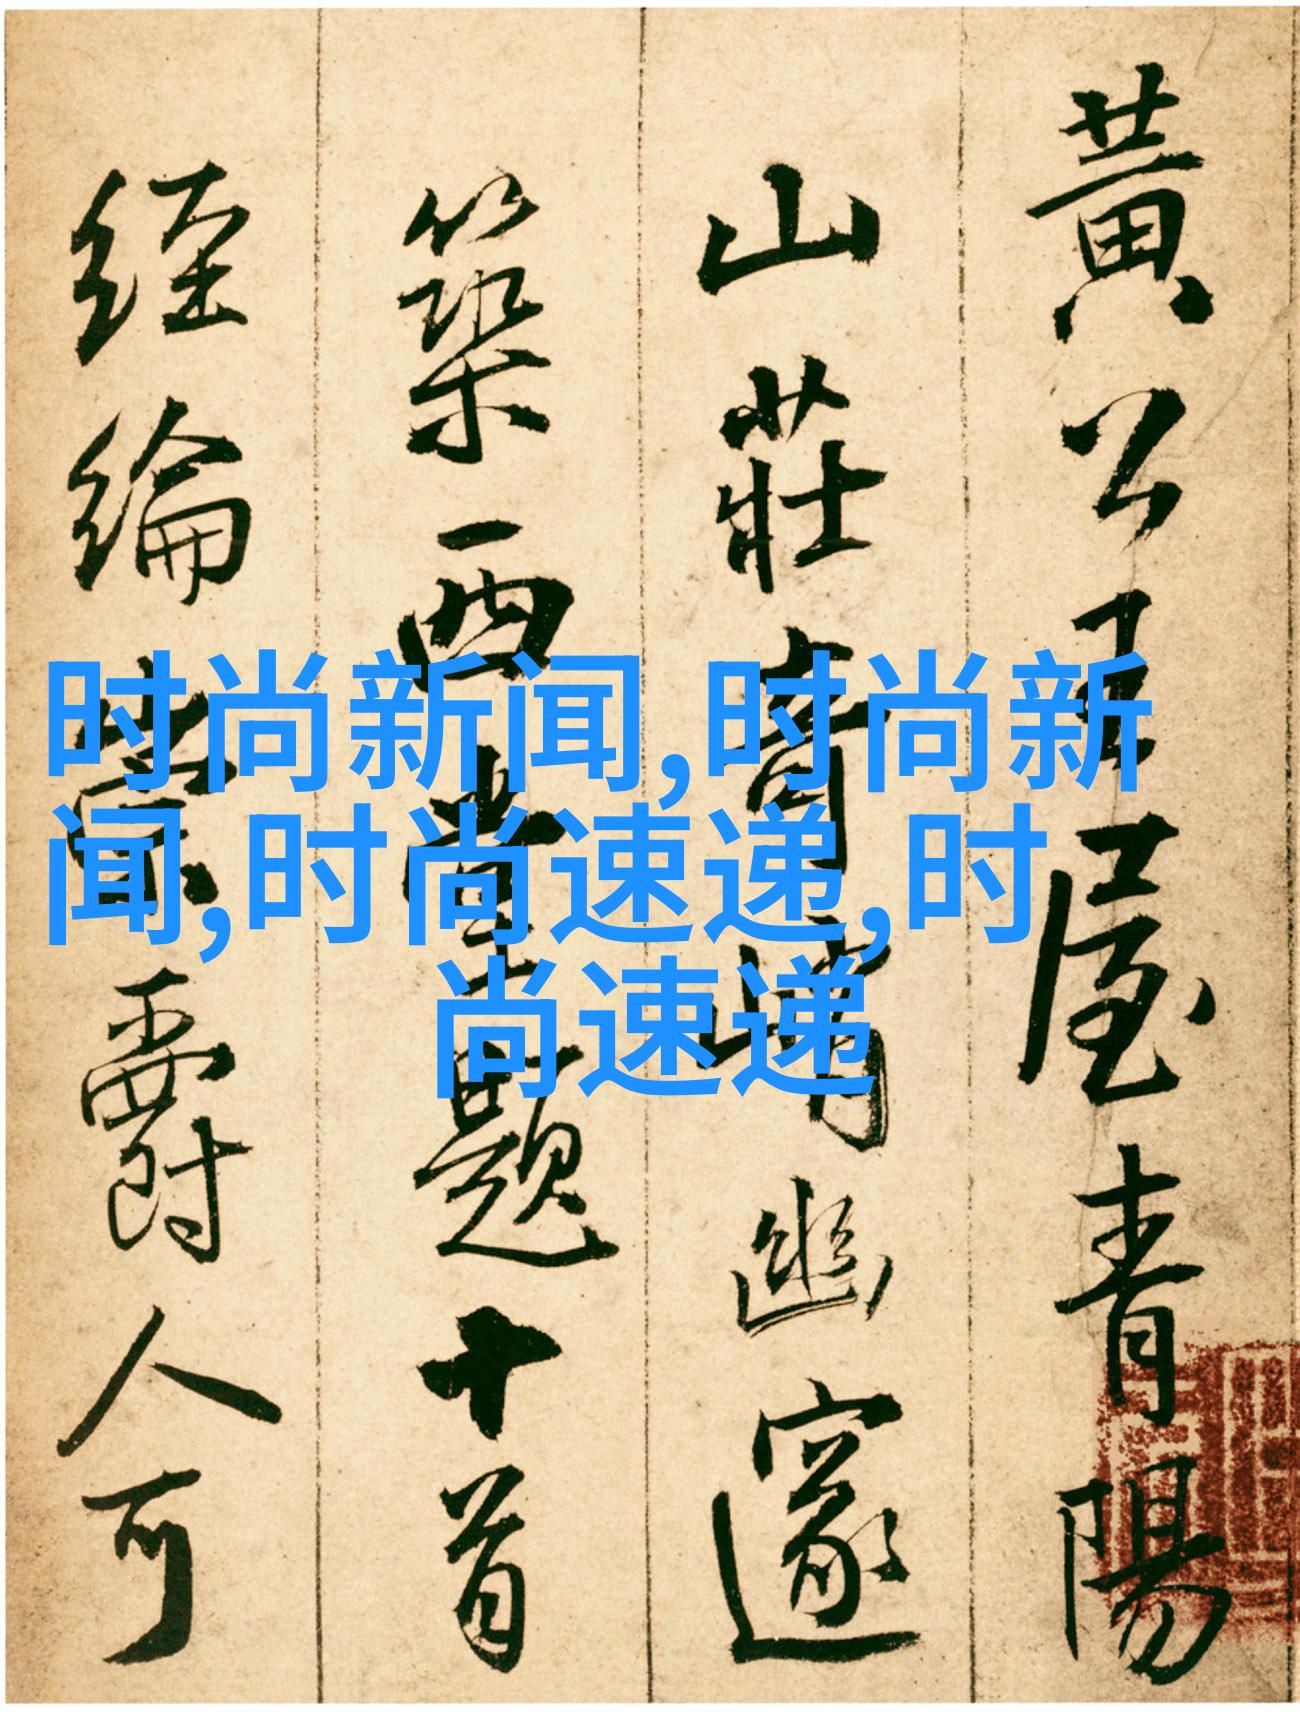 黄公王屋青陽
山莊奇峭幽邃
築西堂題十首
經綸業爵人可
时尚新闻,时尚新
闻,时尚速递,时
尚速递